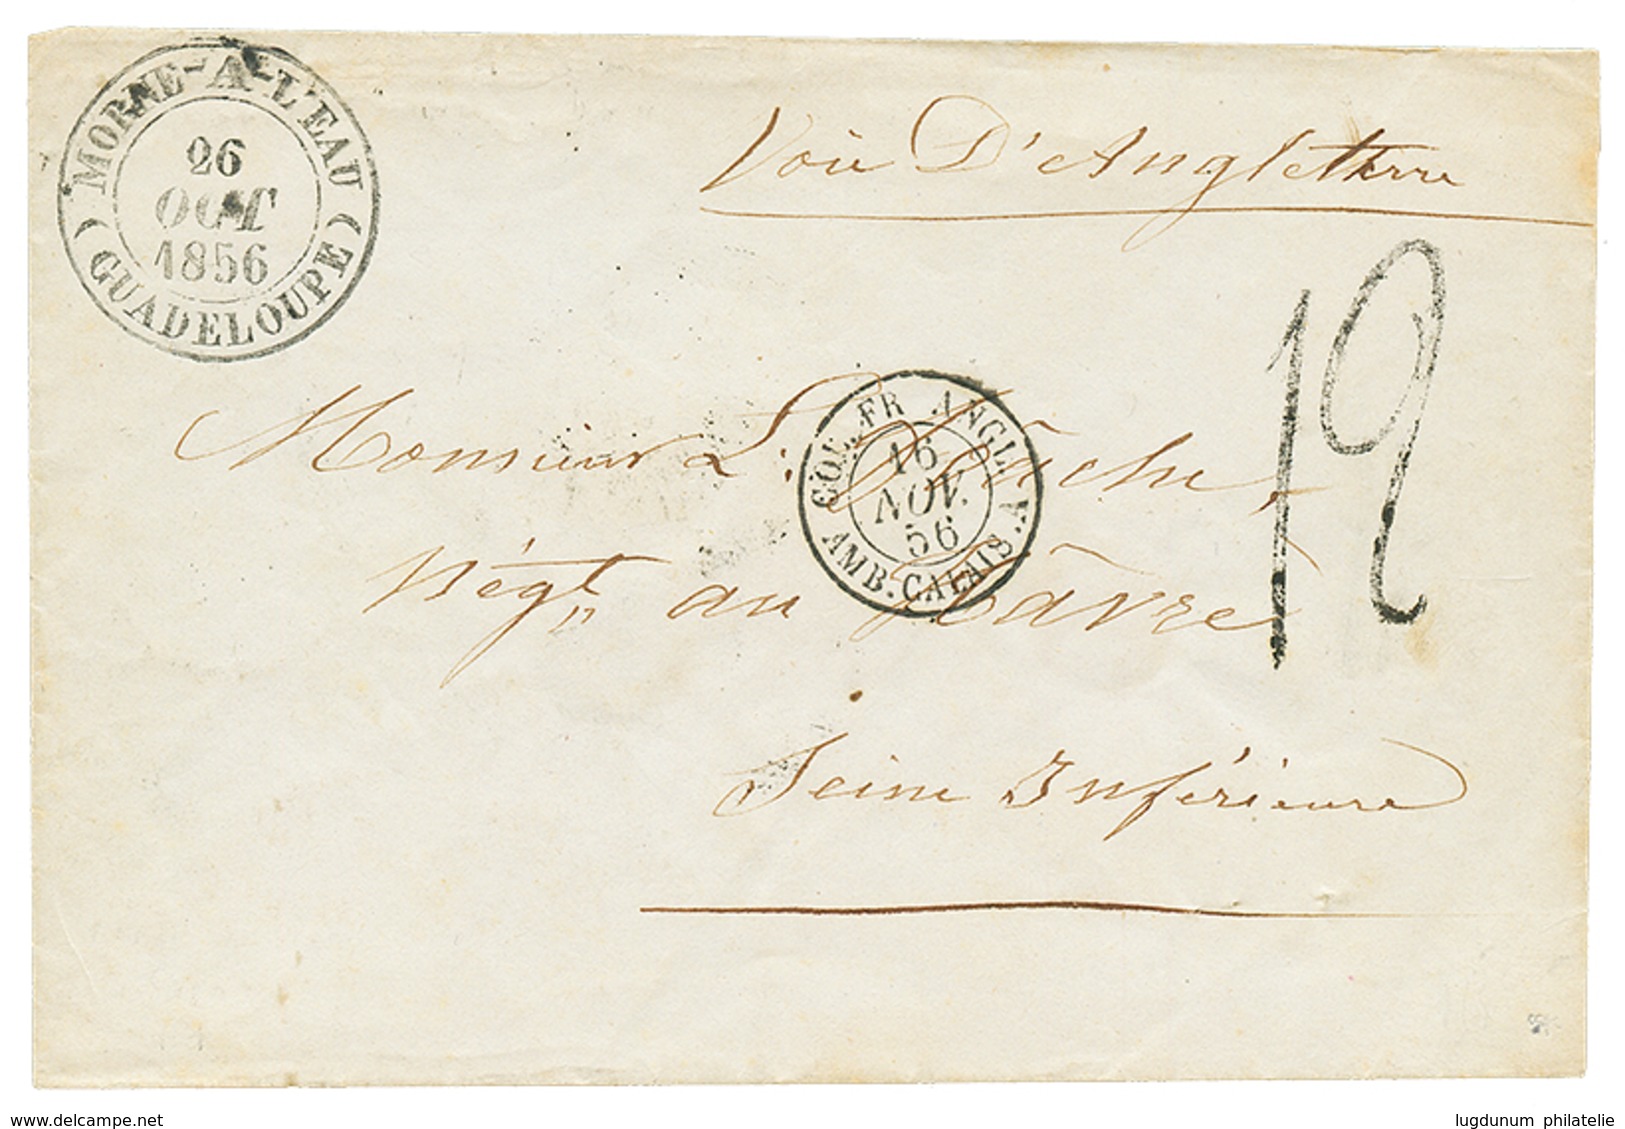 MORNE-A-L'EAU
26
OCT
1856
(GUADELOUPE)
Voie D'Angleterre
12
Monsieur
COL. FR. ANGL.
16
NOV.
56
AMB. CALAIS. A
Négt au Hâvre
Seine Inférieure
delcampe.net
lugdunum philatelie